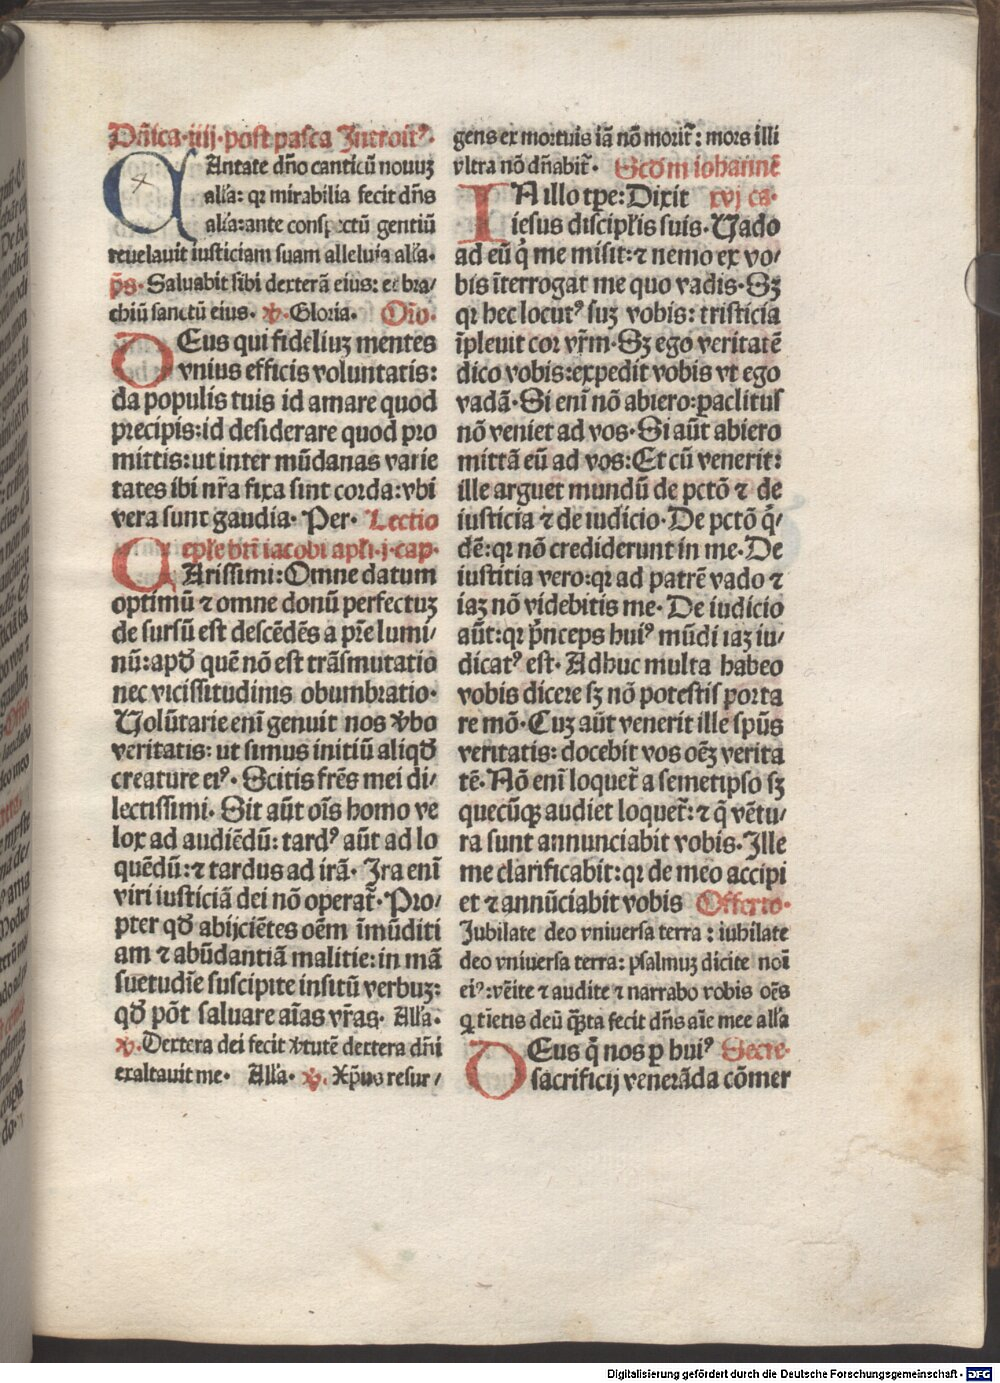 Dñica·iiij·post pasca Introitꝰ·
CAntate dño canticū nouuꝫ
alľa: qꝛ mirabilia fecit dñs
alľa:ante conspectū gentiū
reuelauit iusticiam suam alleluia alľa·
p̄s· Saluabit sibi dexterā eius: et bra/
chiū sanctū eius· ꝟ· Gloria· Orō·
DEus qui fideliuꝫ mentes
vnius efficis voluntatis:
da populis tuis id amare quod
precipis:id desiderare quod pro
mittis:ut inter mūdanas varie
tates ibi nr̄a fixa sint corda:vbi
vera sunt gaudia· Per· Lectio
epľe btī iacobi apľi·j·cap·
CArissimi:Omne datum
optimū ⁊ omne donū perfectuꝫ
de sursū est descēdēs a pr̄e lumi/
nū:apđ quē nō est trāsmutatio
nec vicissitudinis obumbratio·
Volūtarie enī genuit nos ꝟbo
veritatis: ut simus initiū aliqđ
creature eiꝰ· Scitis frēs mei di/
lectissimi· Sit aūt oīs homo ve
lox ad audiēdū: tardꝰ aūt ad lo
quēdū:⁊ tardus ad irā· Ira enī
viri iusticiā dei nō operat̄· Pro/
pter qđ abijciētes oēm īmūditi
am ⁊ abūdantiā malitie:in mā
suetudīe suscipite insitū verbuꝫ:
qđ pōt saluare aīas vr̄as· Alľa·
ꝟ·Dextera dei fecit ꝟtutē dextera dñi
exaltauit me· Alľa· ꝟ· Xp̄us resur/
gens ex mortuis iā nō morit̄: mors illi
vltra nō dñabit̄· Scđm iohannē
IN illo tp̄e:Dixit xvj ca·
iesus discipľis suis·Vado
ad eū q̇ me misit:⁊ nemo ex vo/
bis īterrogat me quo vadis·Sꝫ
qꝛ hec locutꝰ suꝫ vobis: tristicia
īpleuit cor vr̄m·Sꝫ ego veritatē
dico vobis:expedit vobis vt ego
vadā·Si enī nō abiero:ꝑaclitus
nō veniet ad vos·Si aūt abiero
mittā eū ad vos:Et cū venerit:
ille arguet mundū de pctō ⁊ de
iusticia ⁊ de iudicio·De pctō q̇/
dē:qꝛ nō crediderunt in me·De
iustitia vero:qꝛ ad patrē vado ⁊
iaꝫ nō videbitis me· De iudicio
aūt:qꝛ pⁱnceps huiꝰ mūdi iaꝫ iu/
dicatꝰ est· Adhuc multa habeo
vobis dicere sꝫ nō potestis porta
re mō·Cuꝫ aūt venerit ille spūs
veritatis: docebit vos oēꝫ verita
tē·Nō enī loquet̄ a semetipso sꝫ
quecūqꝫ audiet loquet̄:⁊ q̄ vētu/
ra sunt annunciabit vobis·Ille
me clarificabit:qꝛ de meo accipi
et ⁊ annūciabit vobis Offerto·
Jubilate deo vniuersa terra : iubilate
deo vniuersa terra: psalmuꝫ dicite noī
eiꝰ:vēite ⁊ audite ⁊ narrabo vobis oēs
q tīetis deū q̄ta fecit dñs aīe mee alľa
DEus q̇ nos ꝑ huiꝰ Secre·
sacrificij venerāda cōmer
Digitalisierung gefördert durch die Deutsche Forschungsgemeinschaft - DFG